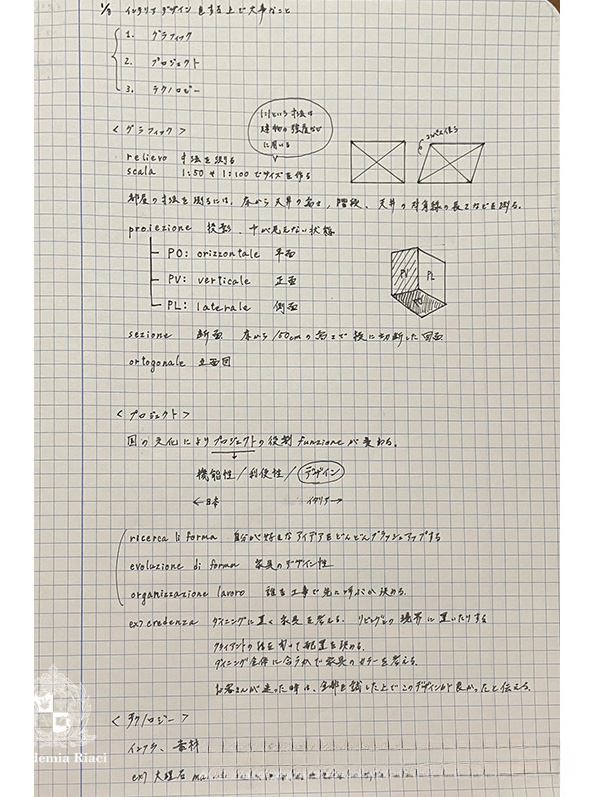 1/9 イタリアデザインをする上で大事なこと
1. グラフィック
2. プロジェクト
3. テクノロジー
<グラフィック>
1:1という寸法は
建物の強度など
に用いる
relievo 寸法を測る
scala 1:50や1:100でサイズを作る
部屋の寸法を測るには、床から天井の高さ、階段、天井の対角線の長さなどを測る。
proiezione 投影、中が見えない状態
PO: orizzontale 平面
PV: verticale 正面
PL: laterale 側面
PV PL
sezione 断面 床から150cmの高さで横に切断した図面
ortogonale 立面図
<プロジェクト>
国の文化によりプロジェクトの役割funzioneが変わる。
機能性/利便性/デザイン
←日本 イタリア→
ricerca li forma 自分が好きなアイデアをどんどんブラッシュアップする
evoluzione di forma 家具のデザイン性
organizzazione lavoro 誰を工事で先に呼ぶか決める。
ex) credenza ダイニングに置く家具を考える。リビングとの境界に置いたりする
クライアントの話を聞いて配置を決める。
ダイニング全体に合うかで家具のカラーを考える。
お客さんが迷った時は、全部を試した上でこのデザインが良かったと伝える。
<テクノロジー>
インフラ、素材
ex) 大理石
demia Riaci